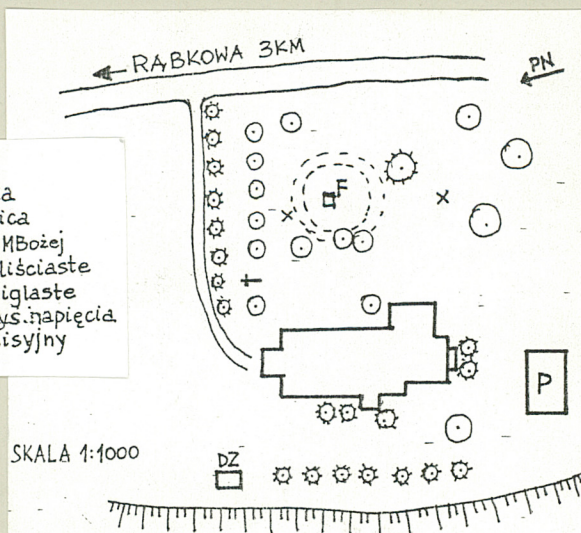 ← RĄBKOWA 3KM
PN
a
ica
MBożej
liściaste
iglaste
ys.napięcia
isyjny
F
P
SKALA 1:1000
DZ